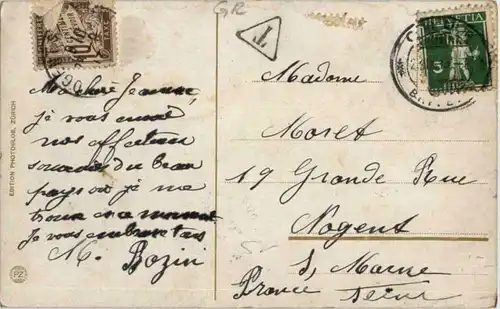 GR
T
HELVETIA
5
10
EDITION PHOTOGLOB, ZÜRICH
PZ
Ma chère Jeanne,
je vous envoie
nos affections
souvenir du beau
pays où je me
trouve en ce moment
Je vous embrasse
M. Bozin
Madame
Moret
19 Grande Rue
Nogent
s/ Marne
France Seine